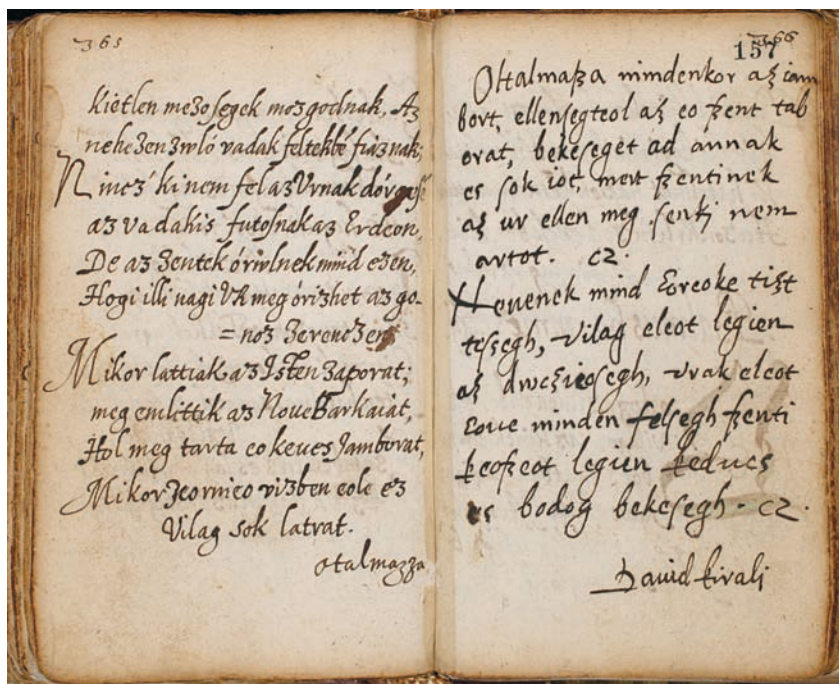 365
kietlen mezosegek mozgodnak, Az
nehezen zwlo vadak feltekbe
Nincz ki nem fel az Vrnak
az vadakis futosnak az Erdeon,
De az Zentek óriwlnek mind ezen,
Hogi illi nagi VR meg órizhet az go-
= noz Zerenczen
Mikor lattiak az Isten Zaporat;
meg emlittik az Noue Barkaiat,
Hol meg tarta eo keues Jamborat,
Mikor Zeornieo vizben eole ez
Vilag sok latrat.
otalmazza
366
157
Oltalmaßa mindenkor az iam
bort, ellensegteol az eo ßent tab
orat, bekeseget ad annak
es sok iot, mert ßentinek
az ur ellen meg senkj nem
artot. cz.
Neuenek mind Eoreoke tißt
tessegh, vilag eleot legien
az dwcziosegh, vrak eleot
Eoue minden felsegh ßenti
keoßeot legien kedues
es bodog bekesegh. cz.
Dauid kirali